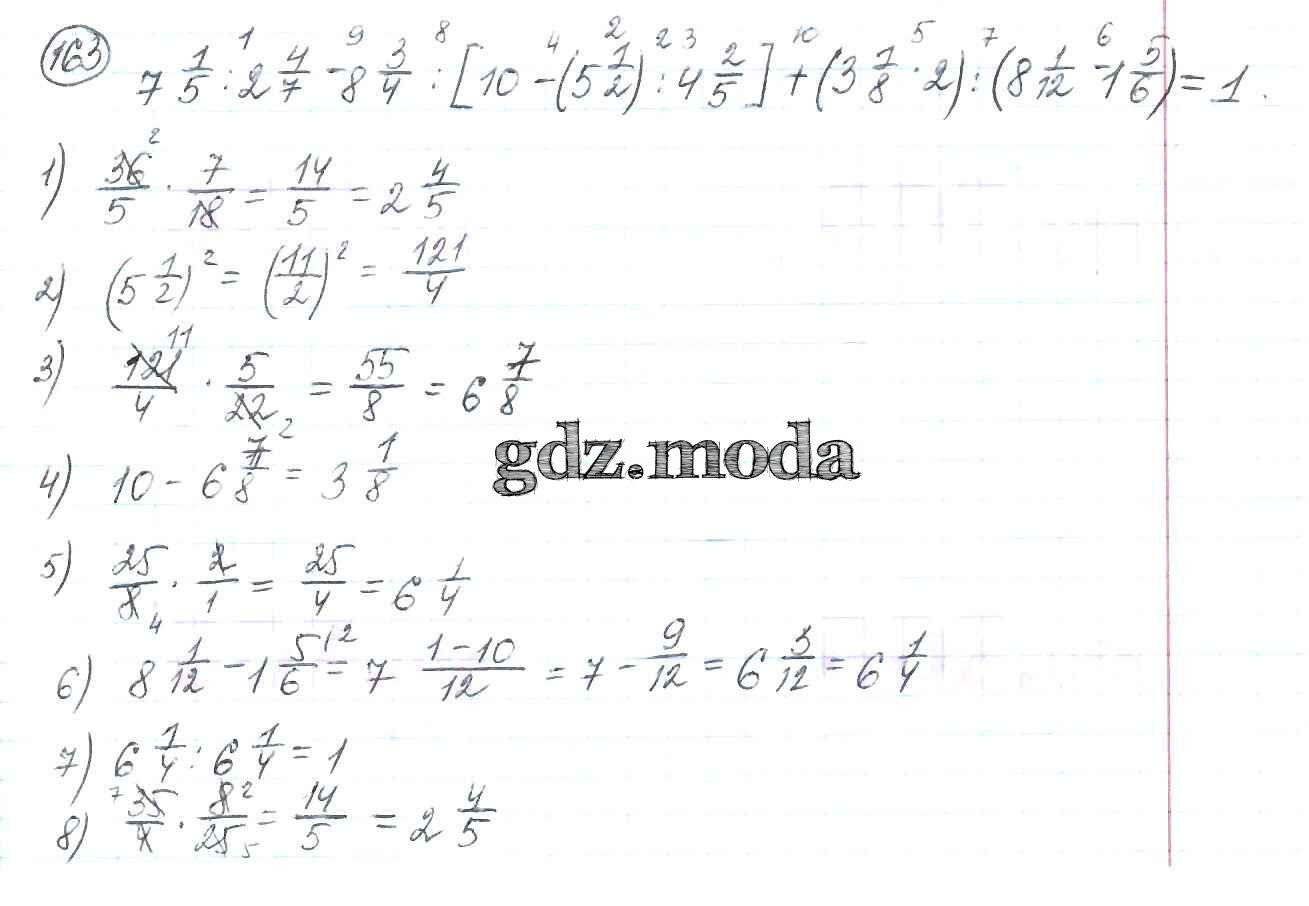 163 7 1/5 : 2 4/7 - 8 3/4 : [10 - (5 1/2)² : 4 2/5] + (3 1/8 · 2) : (8 1/12 - 1 5/6) = 1.
1) 36/5 · 7/18 = 14/5 = 2 4/5
2) (5 1/2)² = (11/2)² = 121/4
3) 121/4 · 5/22 = 55/8 = 6 7/8
4) 10 - 6 7/8 = 3 1/8
gdz.moda
5) 25/8 · 2/1 = 25/4 = 6 1/4
6) 8 1/12 - 1 5/6 = 7 (1-10)/12 = 7 - 9/12 = 6 3/12 = 6 1/4
7) 6 1/4 : 6 1/4 = 1
8) 35/4 · 8/25 = 14/5 = 2 4/5